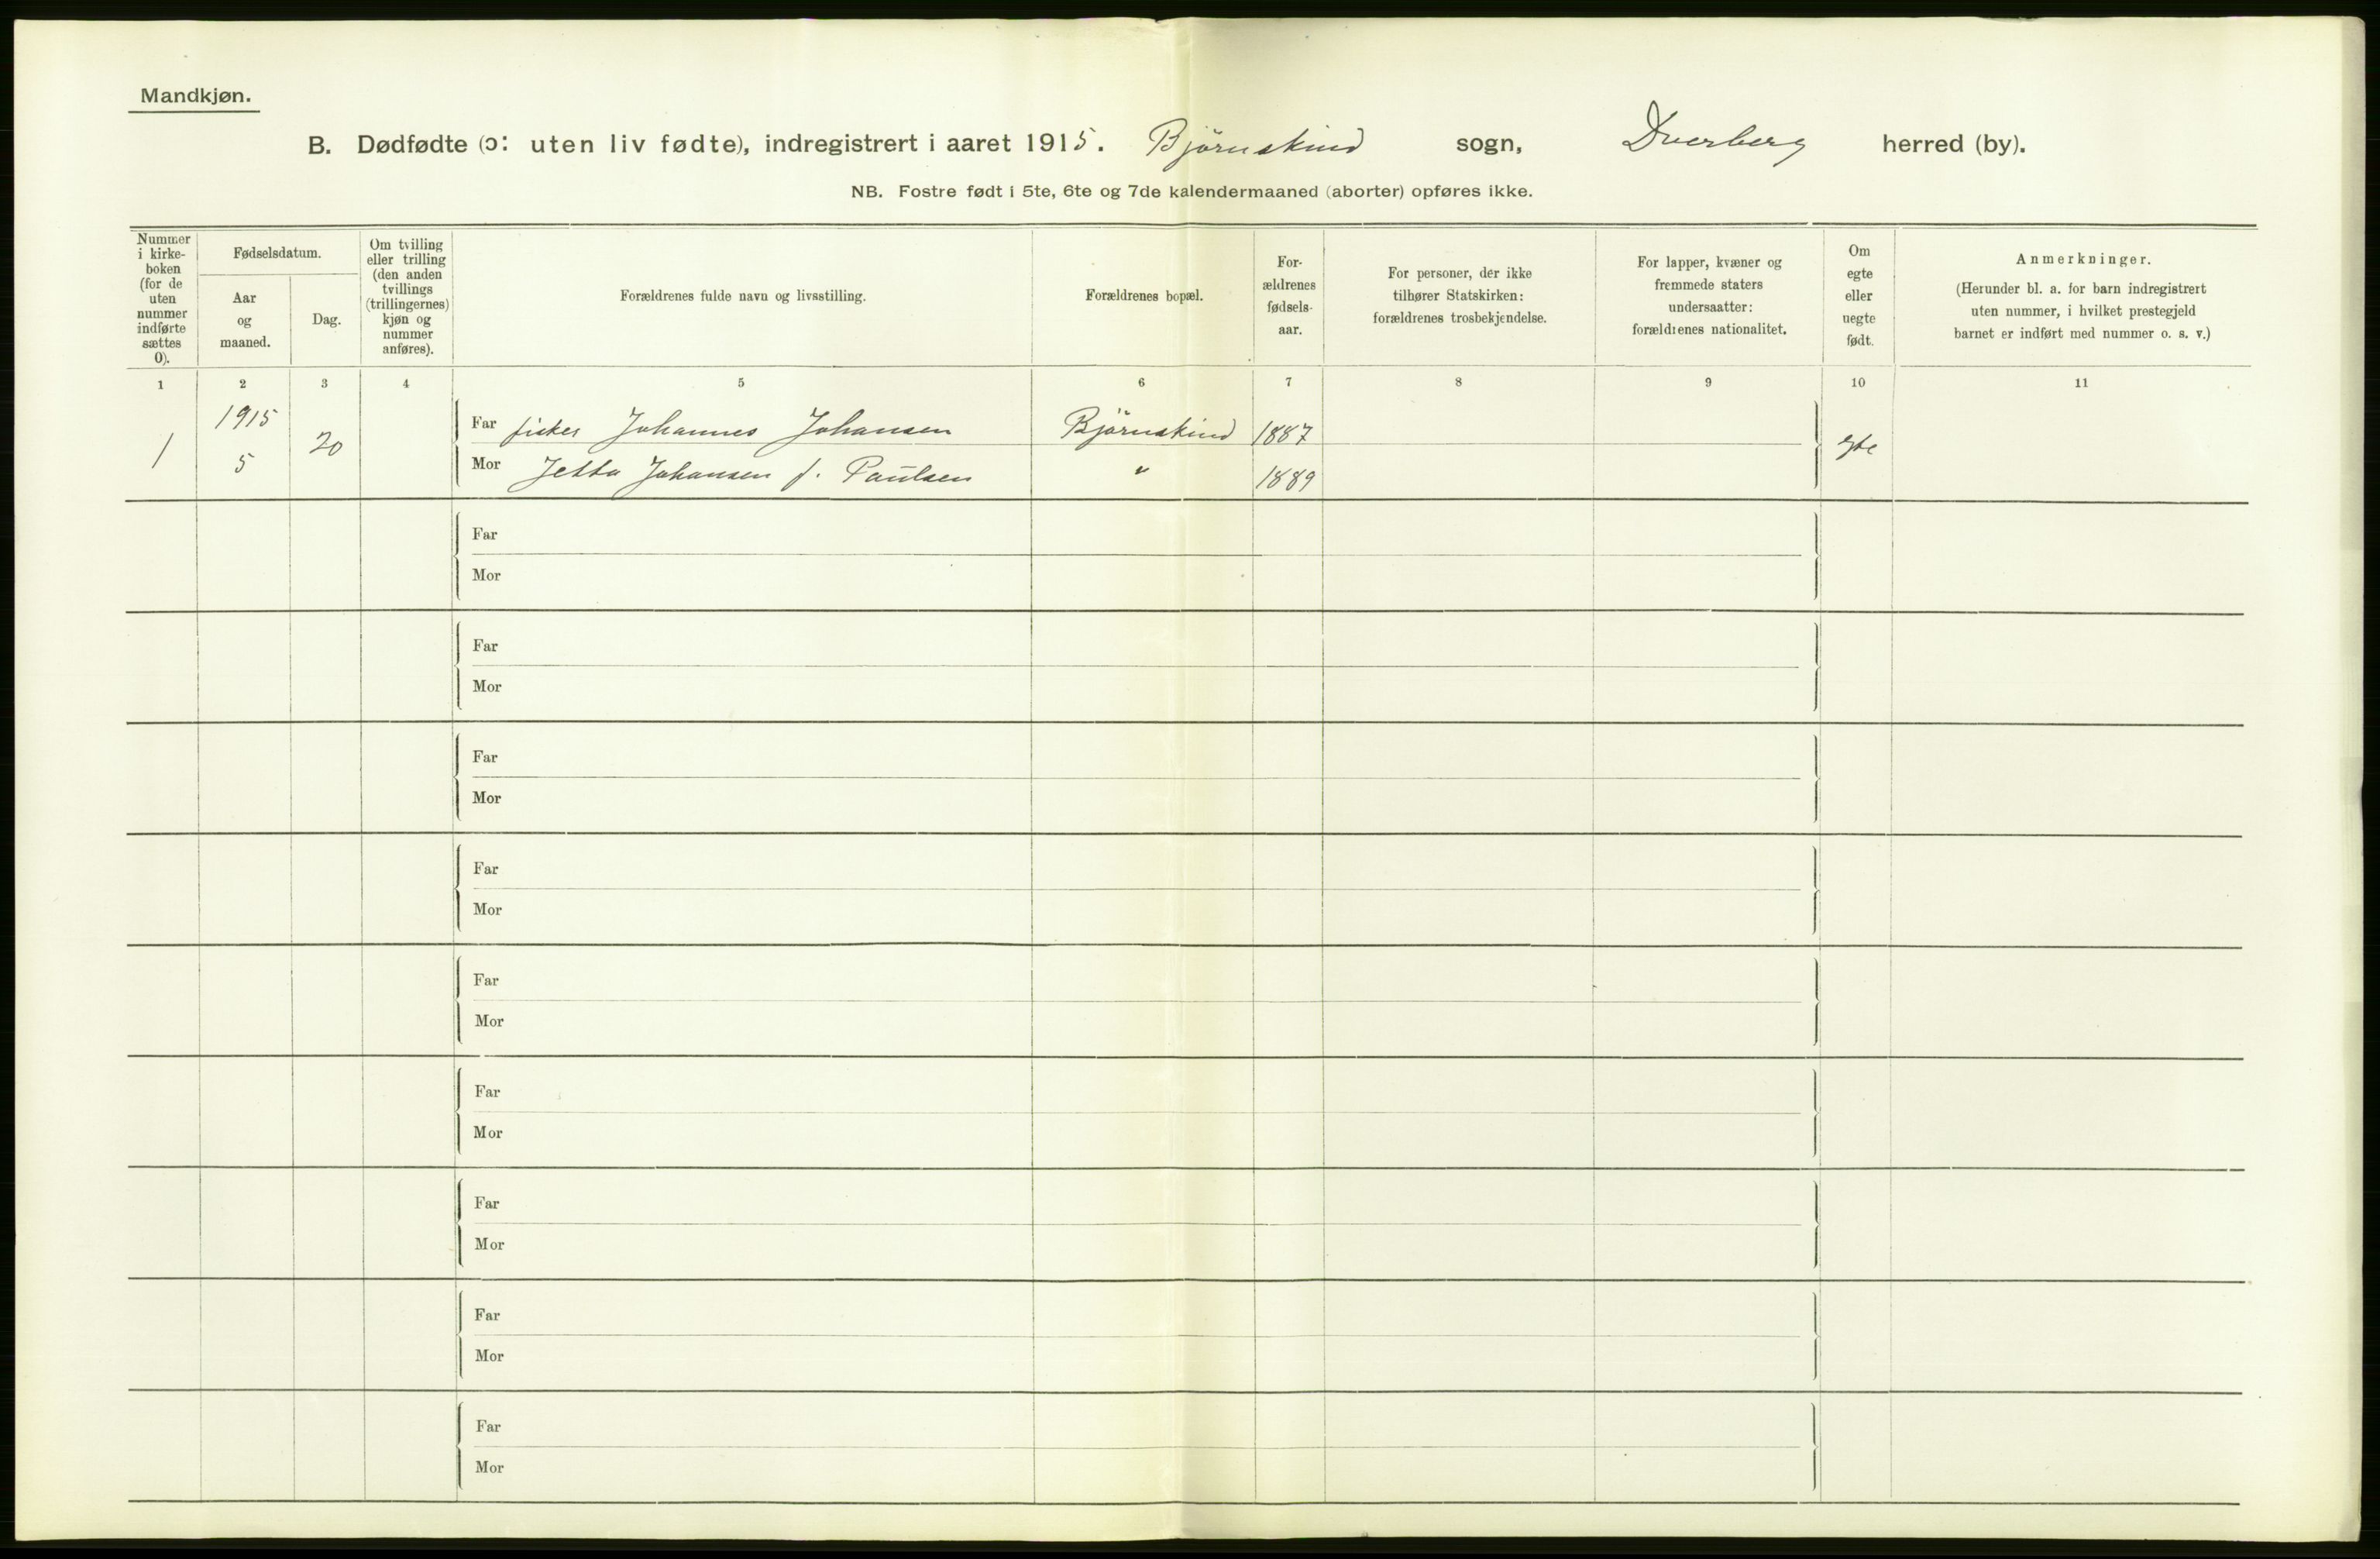 Mandkjøn.
B. Dødfødte (ɔ: uten liv fødte), indregistrert i aaret 1915. Bjørnskind sogn, Dverberg herred (by).
NB. Fostre født i 5te, 6te og 7de kalendermaaned (aborter) opføres ikke.
Nummer
i kirke-
boken
(for de
uten
nummer
indførte
sættes
0).
Fødselsdatum.
Aar
og
maaned.
Dag.
Om tvilling
eller trilling
(den anden
tvillings
(trillingernes)
kjøn og
nummer
anføres).
Forældrenes fulde navn og livsstilling.
Forældrenes bopæl.
For-
ældrenes
fødsels-
aar.
For personer, der ikke
tilhører Statskirken:
forældrenes trosbekjendelse.
For lapper, kvæner og
fremmede staters
undersaatter:
forældrenes nationalitet.
Om
egte
eller
uegte
født.
Anmerkninger.
(Herunder bl. a. for barn indregistrert
uten nummer, i hvilket prestegjeld
barnet er indført med nummer o. s. v.)
1 2 3 4 5 6 7 8 9 10 11
1 1915 5 20 egte
Far fisker Johannes Johansen Bjørnskind 1887
Mor Jetta Johansen f. Paulsen " 1889
Far
Mor
Far
Mor
Far
Mor
Far
Mor
Far
Mor
Far
Mor
Far
Mor
Far
Mor
Far
Mor